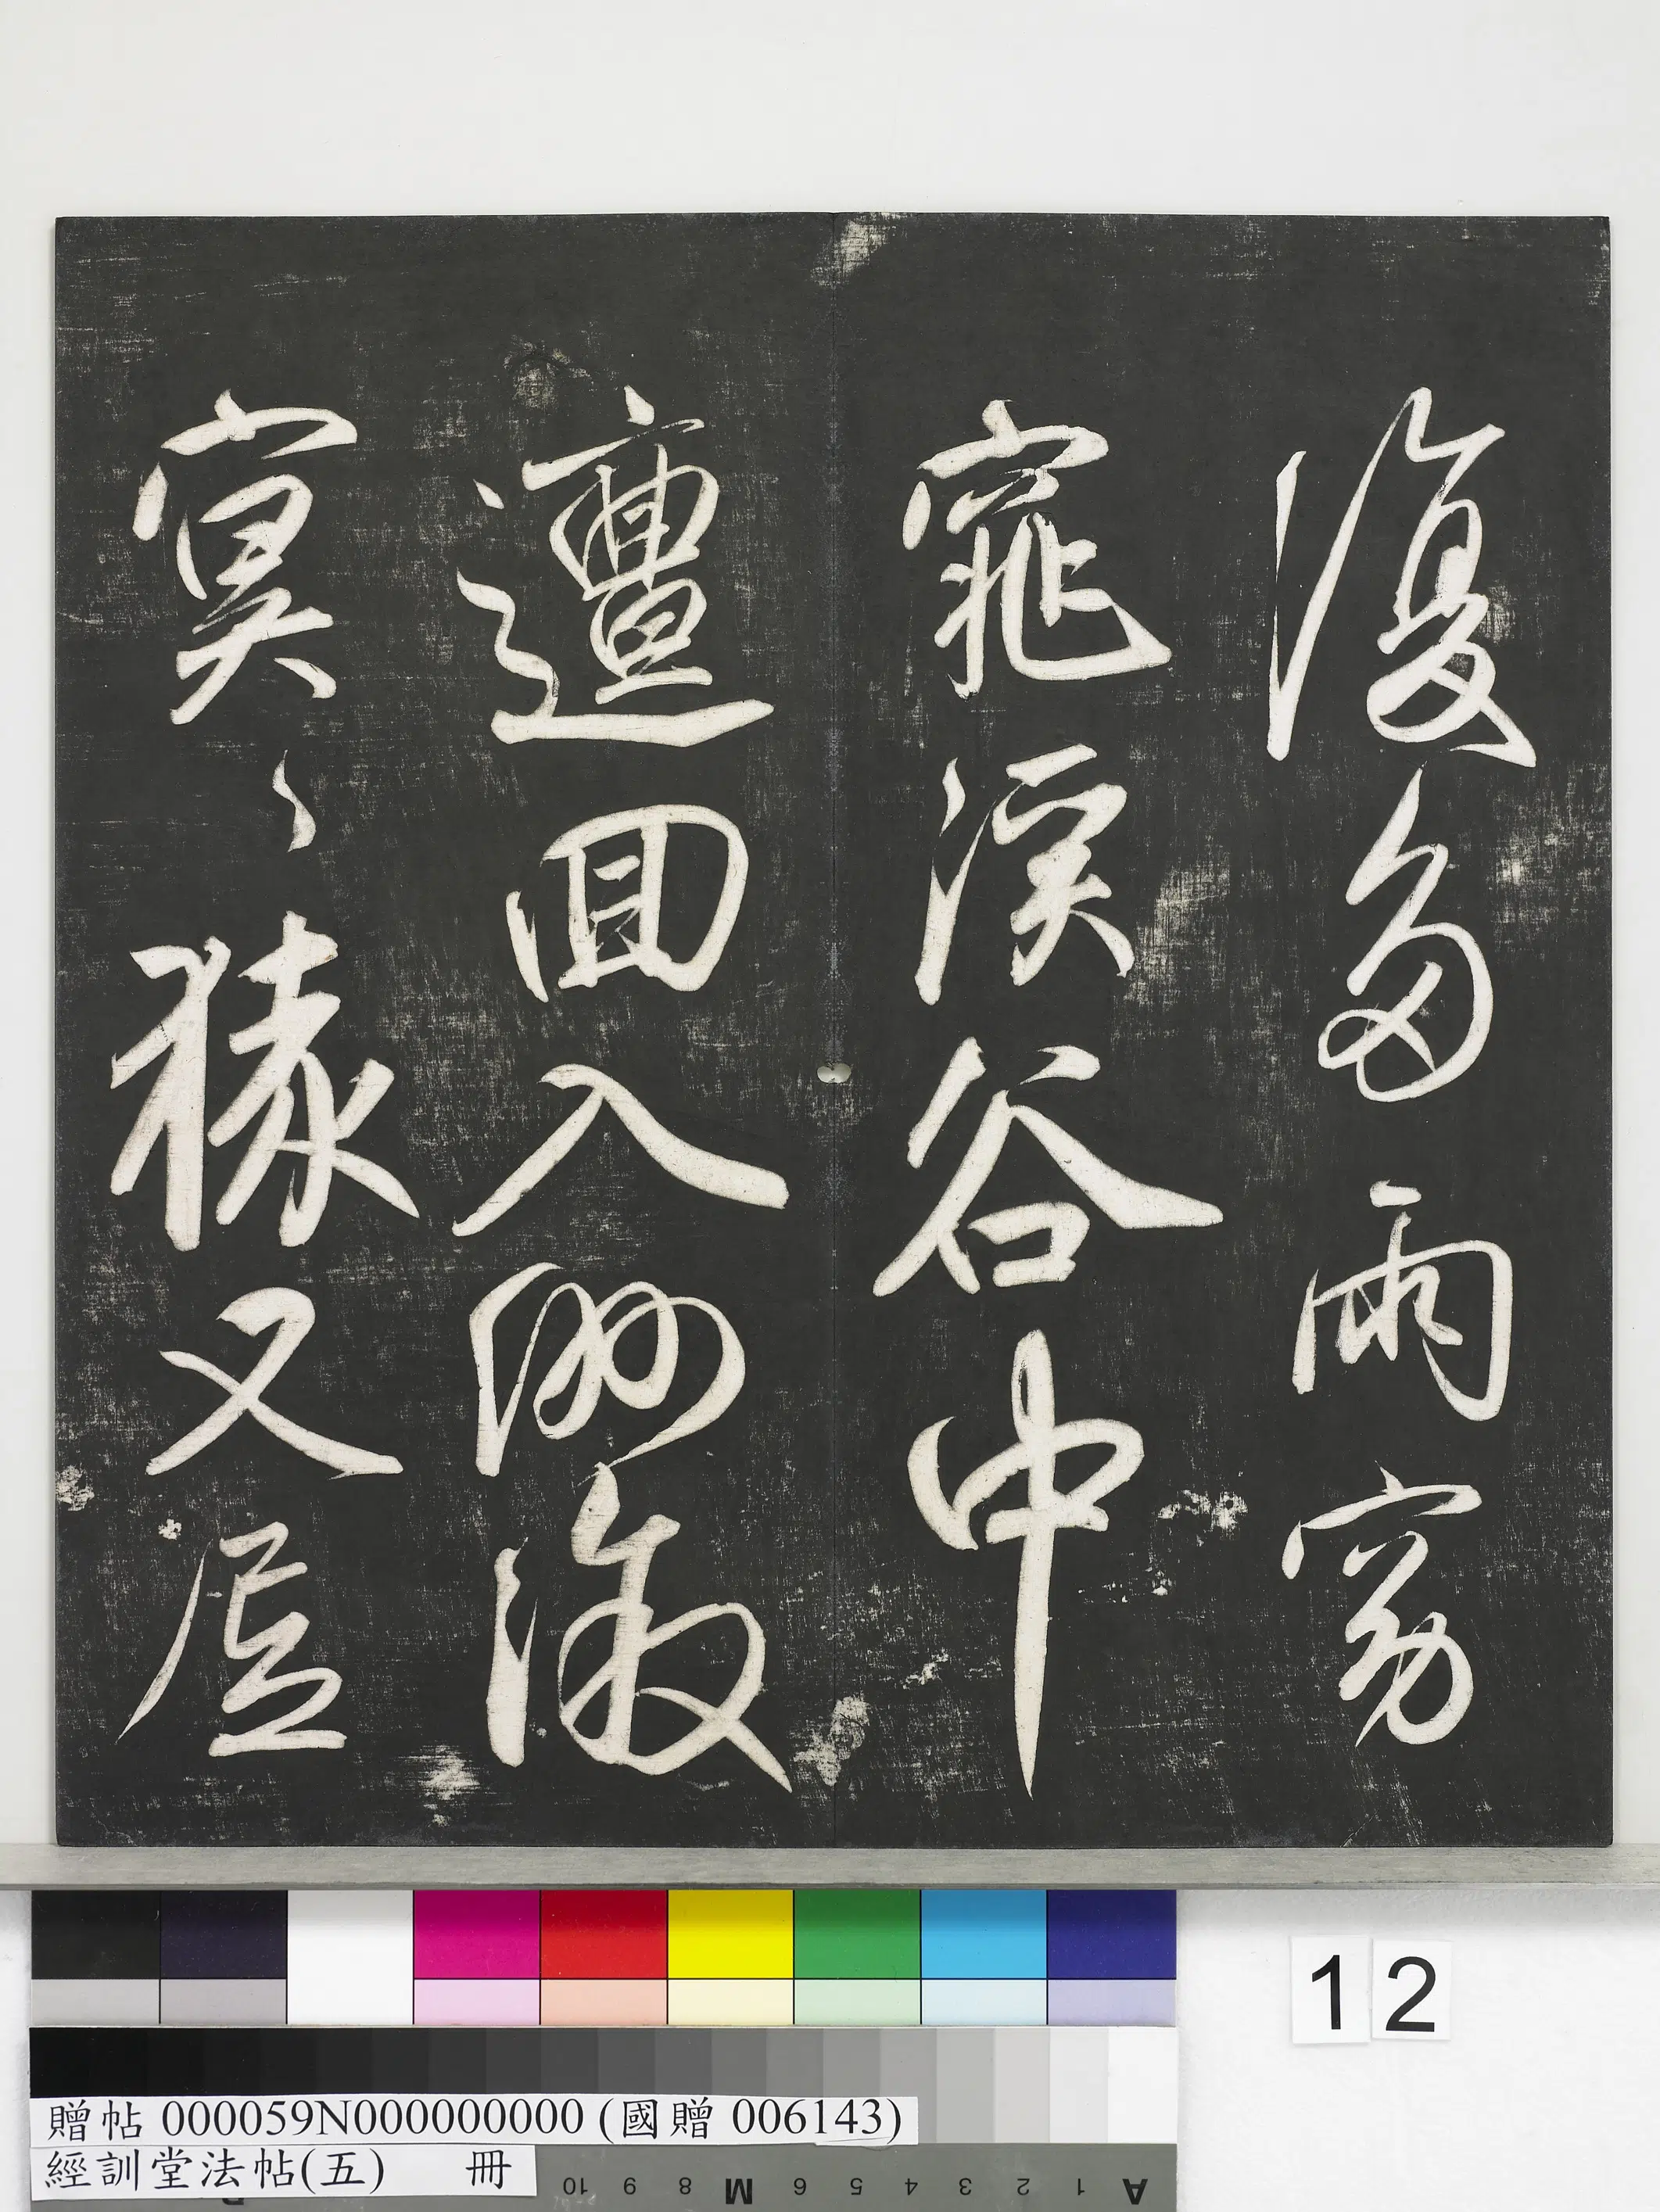 復多雨窈
窕溪谷中
邅回入州漵
冥〻猿又㞐
12
贈帖 000059N000000000 (國贈 006143)
經訓堂法帖(五) 冊
A 1 2 3 4 5 6 M 8 9 10